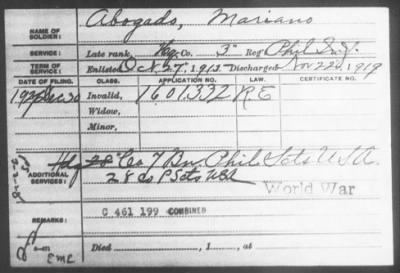 NAME OF SOLDIER: Abogado, Mariano
SERVICE: Late rank, Co. 3" Reg't Phil Inf.
TERM OF SERVICE: Enlisted Oct 27, 1913 Discharged Nov 22, 1919
DATE OF FILING. CLASS. APPLICATION NO. LAW. CERTIFICATE NO.
Dec 30 Invalid, 1601332 R.E
Widow,
Minor,
ADDITIONAL SERVICES: 28" Co 7 Bn. Phil Scts U.S.A.
28 Co P Scts USA
World War
C 461 199 COMBINED
REMARKS:
EMC Died , 1 , at